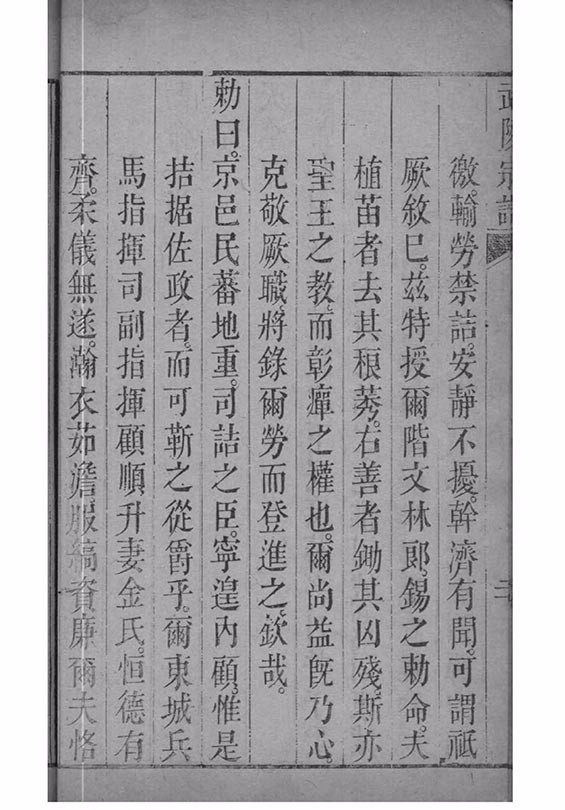 徼。輸勞禁詰。安靜不擾。幹濟有聞。可謂祗
厥敘巳。茲特授爾階文林郎。錫之勅命。夫
植苗者去其稂莠。右善者鋤其凶殘。斯亦
聖王之教。而彰癉之權也。爾尚益旣乃心。
克敬厥職。將錄爾勞而登進之。欽哉。
勅曰。京邑民蕃地重。司詰之臣。寧遑內顧。惟是
拮据佐政者。而可靳之從爵乎。爾東城兵
馬指揮司副指揮顧順升妻金氏。恒德有
齊。柔儀無遂。瀚衣茹澹。服縞資廉。爾夫恪